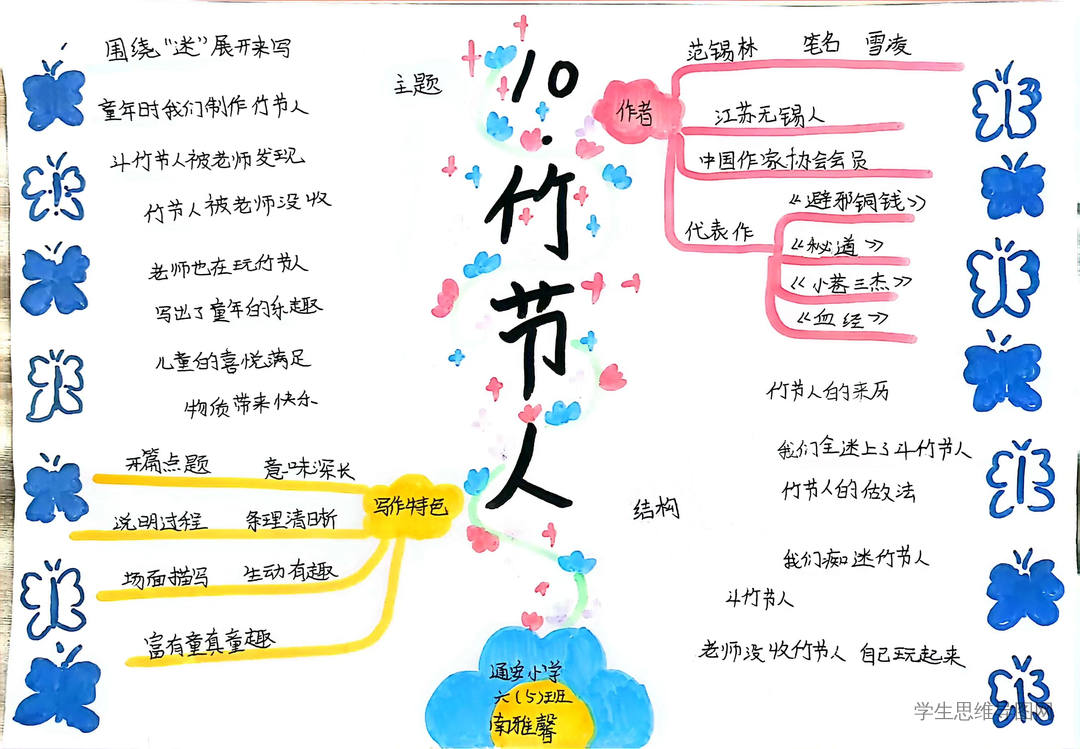 10.竹节人
作者
范锡林 笔名 雪凌
江苏无锡人
中国作家协会会员
代表作
《避邪铜钱》
《秘道》
《小巷三杰》
《血经》
主题
围绕“迷”展开来写
童年时我们制作竹节人
斗竹节人被老师发现
竹节人被老师没收
老师也在玩竹节人
写出了童年的乐趣
儿童的喜悦满足
物质带来快乐
写作特色
开篇点题 意味深长
说明过程 条理清晰
场面描写 生动有趣
富有童真童趣
结构
竹节人的来历
我们全迷上了斗竹节人
竹节人的做法
我们痴迷竹节人
斗竹节人
老师没收竹节人 自己玩起来
通安小学
六(5)班
南雅馨
学生思维导图网